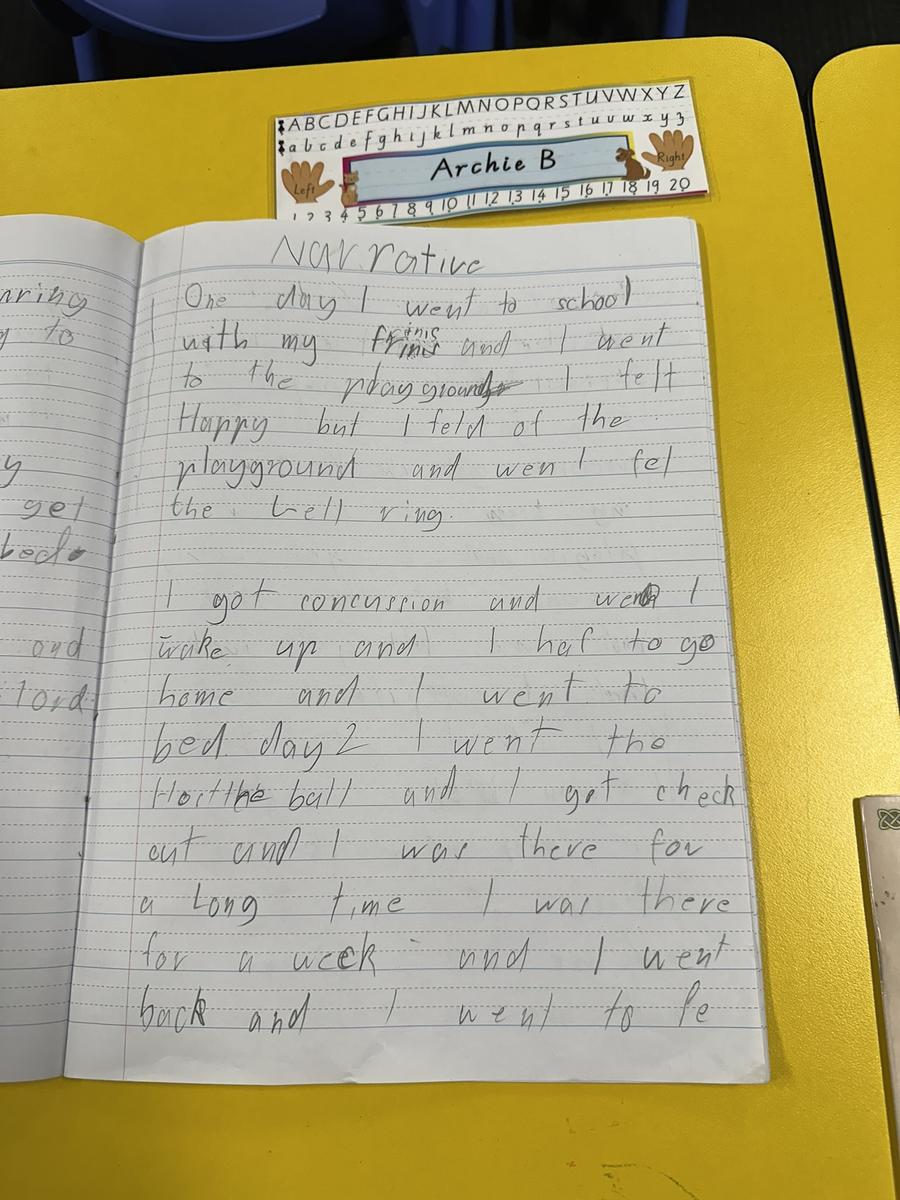 A B C D E F G H I J K L M N O P Q R S T U V W X Y Z
a b c d e f g h i j k l m n o p q r s t u v w x y z
Left
Archie B
Right
1 2 3 4 5 6 7 8 9 10 11 12 13 14 15 16 17 18 19 20
Narrative
One day I went to school
with my and I went
to the playground I felt
Happy but I feld of the
playground and wen I fel
the bell ring.
I got concussion and wen I
wake up and I haf to go
home and I went to
bed. day 2 I went tho
ball and I got check
out and I was there for
a Long time I was there
for a week and I went
back and I went to Pe
nring
to
y
get
bed.
and
lord